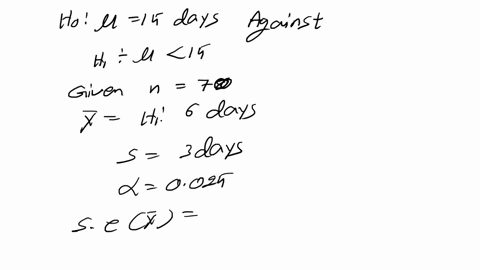 H₀: μ = 15 days Against
H₁ ÷ μ < 15
Given n = 70
x̄ = H₁! 6 days
s = 3 days
α = 0.025
s. e (x̄) =